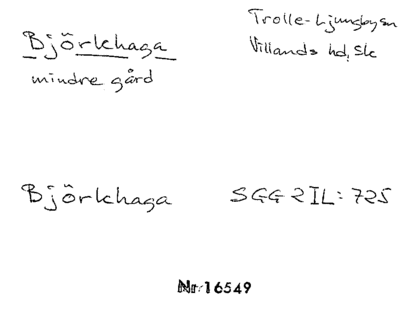 Björkhaga
mindre gård
Trolle-Ljungbysn
Villands hd, Sk
Björkhaga SGG 2 II: 725
Nr 16549